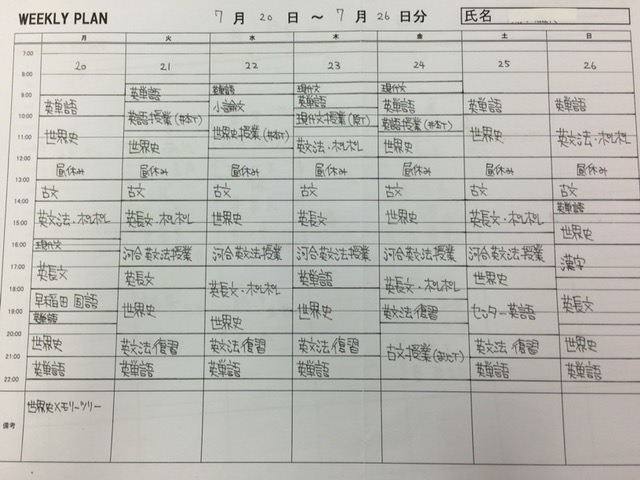 WEEKLY PLAN 7月20日 ～ 7月26日分 氏名
月 火 水 木 金 土 日
20 21 22 23 24 25 26
7:00
8:00
9:00
10:00
11:00
12:00
13:00
14:00
15:00
16:00
17:00
18:00
19:00
20:00
21:00
22:00
備考
英単語
世界史
昼休み
古文
英文法・ポレポレ
現代文
英長文
早稲田国語
英単語
世界史
英単語
世界史メモリーツリー
英単語
英語授業
世界史
昼休み
古文
英長文・ポレポレ
河合英文法授業
英長文
世界史
英文法復習
英単語
英単語
小論文
世界史授業
昼休み
古文
世界史
河合英文法授業
英長文・ポレポレ
世界史
英文法復習
英単語
現代文
英単語
現代文授業
英文法・ポレポレ
昼休み
古文
英長文
河合英文法授業
英単語
世界史
英文法復習
英単語
現代文
英単語
英語授業
世界史
昼休み
古文
世界史
河合英文法授業
英長文・ポレポレ
英文法復習
古文授業
英単語
世界史
昼休み
古文
英長文・ポレポレ
河合英文法授業
世界史
センター英語
英文法復習
英単語
英単語
英文法・ポレポレ
昼休み
古文
英単語
世界史
漢字
英長文
世界史
英単語